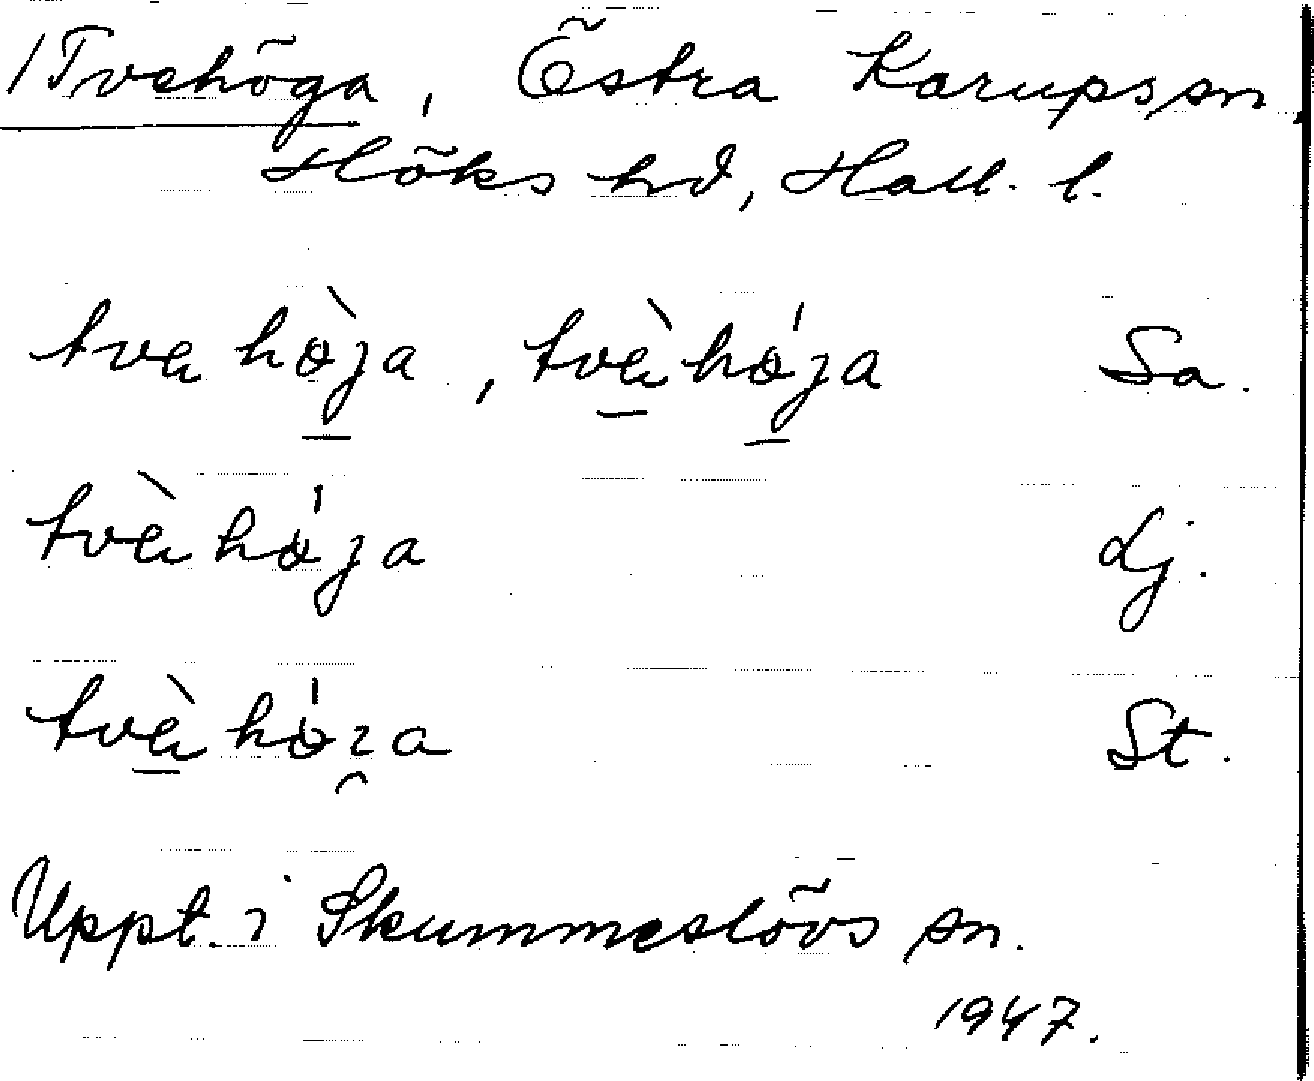 /Tvehöga, Östra Karups sn.
Höks hd, Hall. l.
tvea hø̀ja, tvèahǿja Sa.
tvèahǿja Lj.
tvèahǿɀa St.
Uppt. i Skummeslövs sn.
1947.